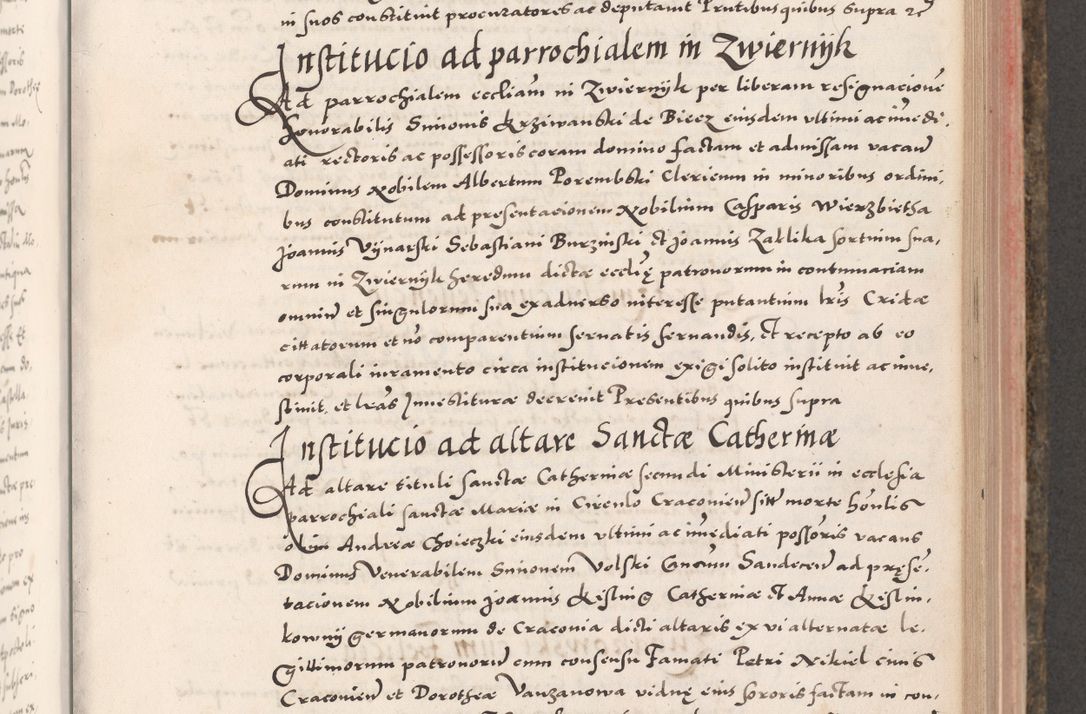 in suos constituit procuratores ac deputavit Prntibus quibus supra rc
Institucio ad parrochialem in Zwiernyk
Ad parrochialem eccliam in Zwiernyk per liberam resignacione
honorabilis Simonis Krziwanski de Biecz eiusdem vltimi ac imedi-
ati rectoris ac possessoris coram domino factam et admissam vacan
Dominus Nobilem Albertum Porembski Clericum in minoribus ordini-
bus constitutum ad presentacionem Nobilium Casparis Wierzbietha
Joannis Vynarski Sebastiani Burzinski et Joannis Zaklika sortium sua-
rum in Zwiernyk heredum dictæ ecclię patronorum in contumaciam
omniu et singulorum sua exaduerso interesse putantium lris Cridæ
cittatorum et no comparentium seruatis seruandis, et recepto ab eo
corporali iuramento circa institucionem exigi solito instituit ac inue-
stiuit, et lras Inuestituræ decreuit Presentibus quibus supra
Institucio ad altare Sanctæ Catherinæ
Ad altare tituli sanctæ Catherinæ secundi Ministerii in ecclesia
parrochiali sanctæ Mariæ in Circulo Cracovien sitt morte honlis
olim Andreæ Choieczki eiusdem vltimi ac imediati possoris vacans
Dominus Venerabilem Simonem Volski Canonicum Sandecen ad pręse-
tacionem Nobilium Joannis Kesling Catherinæ et Annæ Keslin-
kowny germanorum de Cracouia dicti altaris ex vi alternatæ le-
gittimorum patronoru cum consensu Famati Petri Nikiel ciuis
Cracouien et Dorotheæ Vanzanowa viduę eius sororis factam in con-